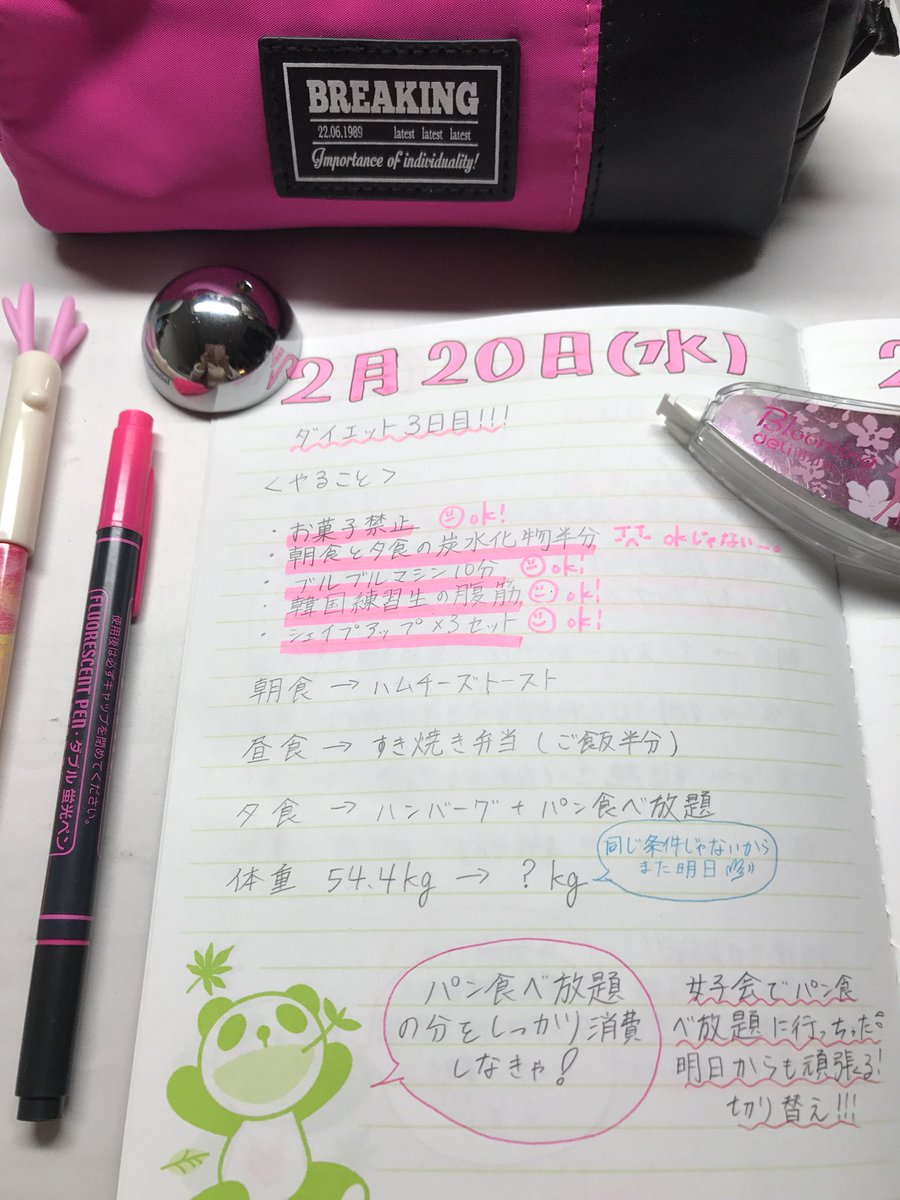 BREAKING
22.06.1989 latest latest latest
Importance of individuality!
2月20日(水)
ダイエット3日目!!!
<やること>
・お菓子禁止 ok!
・朝食と夕食の炭水化物半分 okじゃない…。
・ブルブルマシン10分 ok!
・韓国練習生の腹筋 ok!
・シェイプアップ×3セット ok!
朝食→ハムチーズトースト
昼食→すき焼き弁当(ご飯半分)
夕食→ハンバーグ+パン食べ放題
体重 54.4kg→?kg
同じ条件じゃないから
また明日
パン食べ放題
の分をしっかり消費
しなきゃ!
女子会でパン食
べ放題に行っちった。
明日からも頑張る!
切り替え!!!
使用後は必ずキャップを閉めてください。
FLUORESCENT PEN・ダブル蛍光ペン